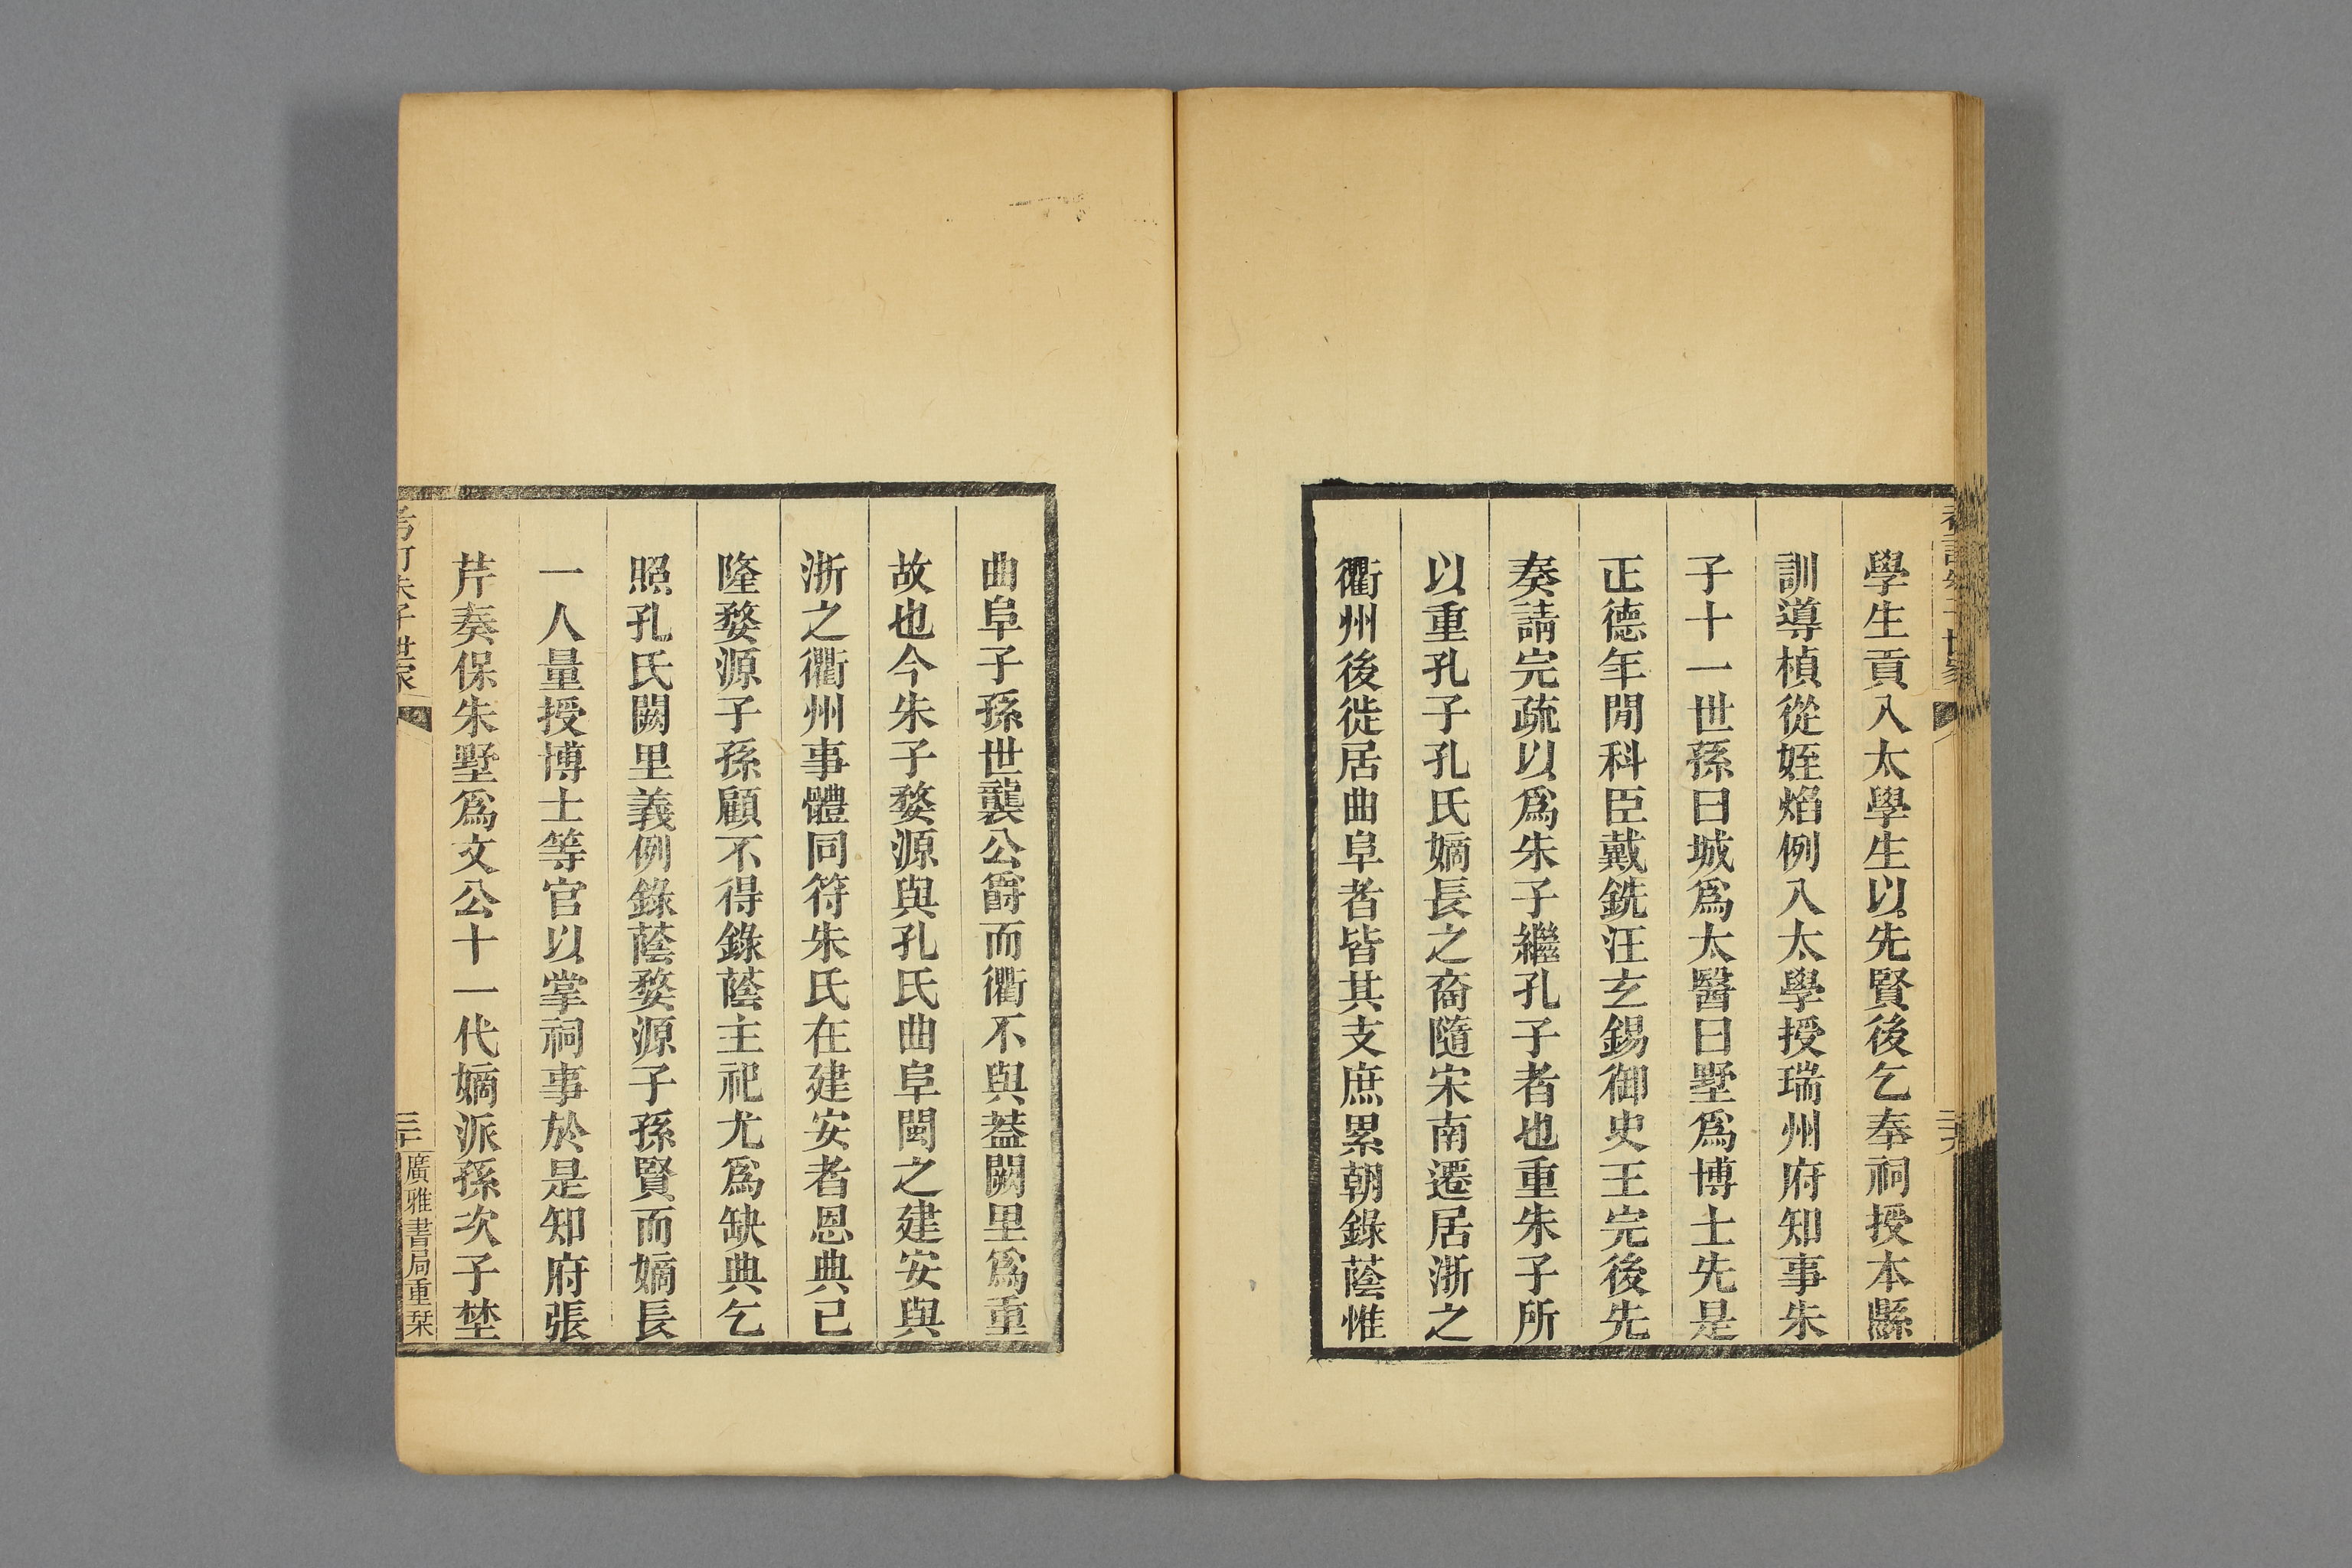 學生貢入太學生以先賢後乞奉祠授本縣
訓導楨從姪焰例入太學授瑞州府知事朱
子十一世孫曰城爲太醫曰墅爲博士先是
正德年閒科臣戴銑汪玄錫御史王完後先
奏請完疏以爲朱子繼孔子者也重朱子所
以重孔子孔氏嫡長之裔隨宋南遷居浙之
衢州後徙居曲阜者皆其支庶累朝錄蔭惟
曲阜子孫世襲公爵而衢不與葢闕里爲重
故也今朱子婺源與孔氏曲阜閩之建安與
浙之衢州事體同符朱氏在建安者恩典已
隆婺源子孫顧不得錄蔭主祀尤爲缺典乞
照孔氏闕里義例錄蔭婺源子孫賢而嫡長
一人量授博士等官以掌祠事於是知府張
芹奏保朱墅爲文公十一代嫡派孫次子埜
考訂朱子世家
三十
廣雅書局重栞